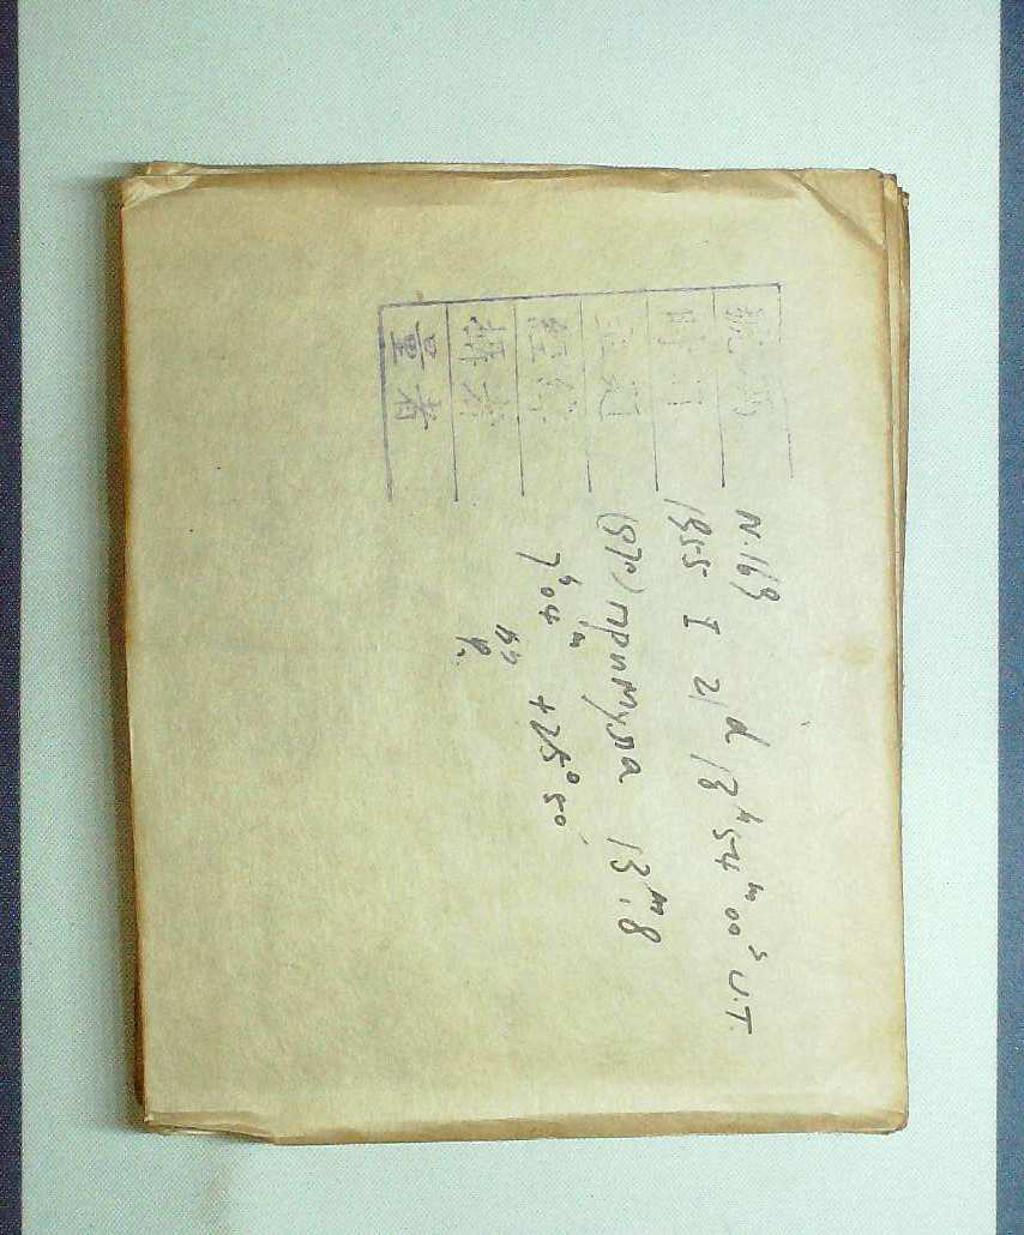 號碼 N.169
時刻 1955 I 21ᵈ 13ʰ54ᵐ00ˢ U.T.
(970) примула 13ᵐ.8
經緯 7ʰ04ᵐ +25°50′
攝者
量者